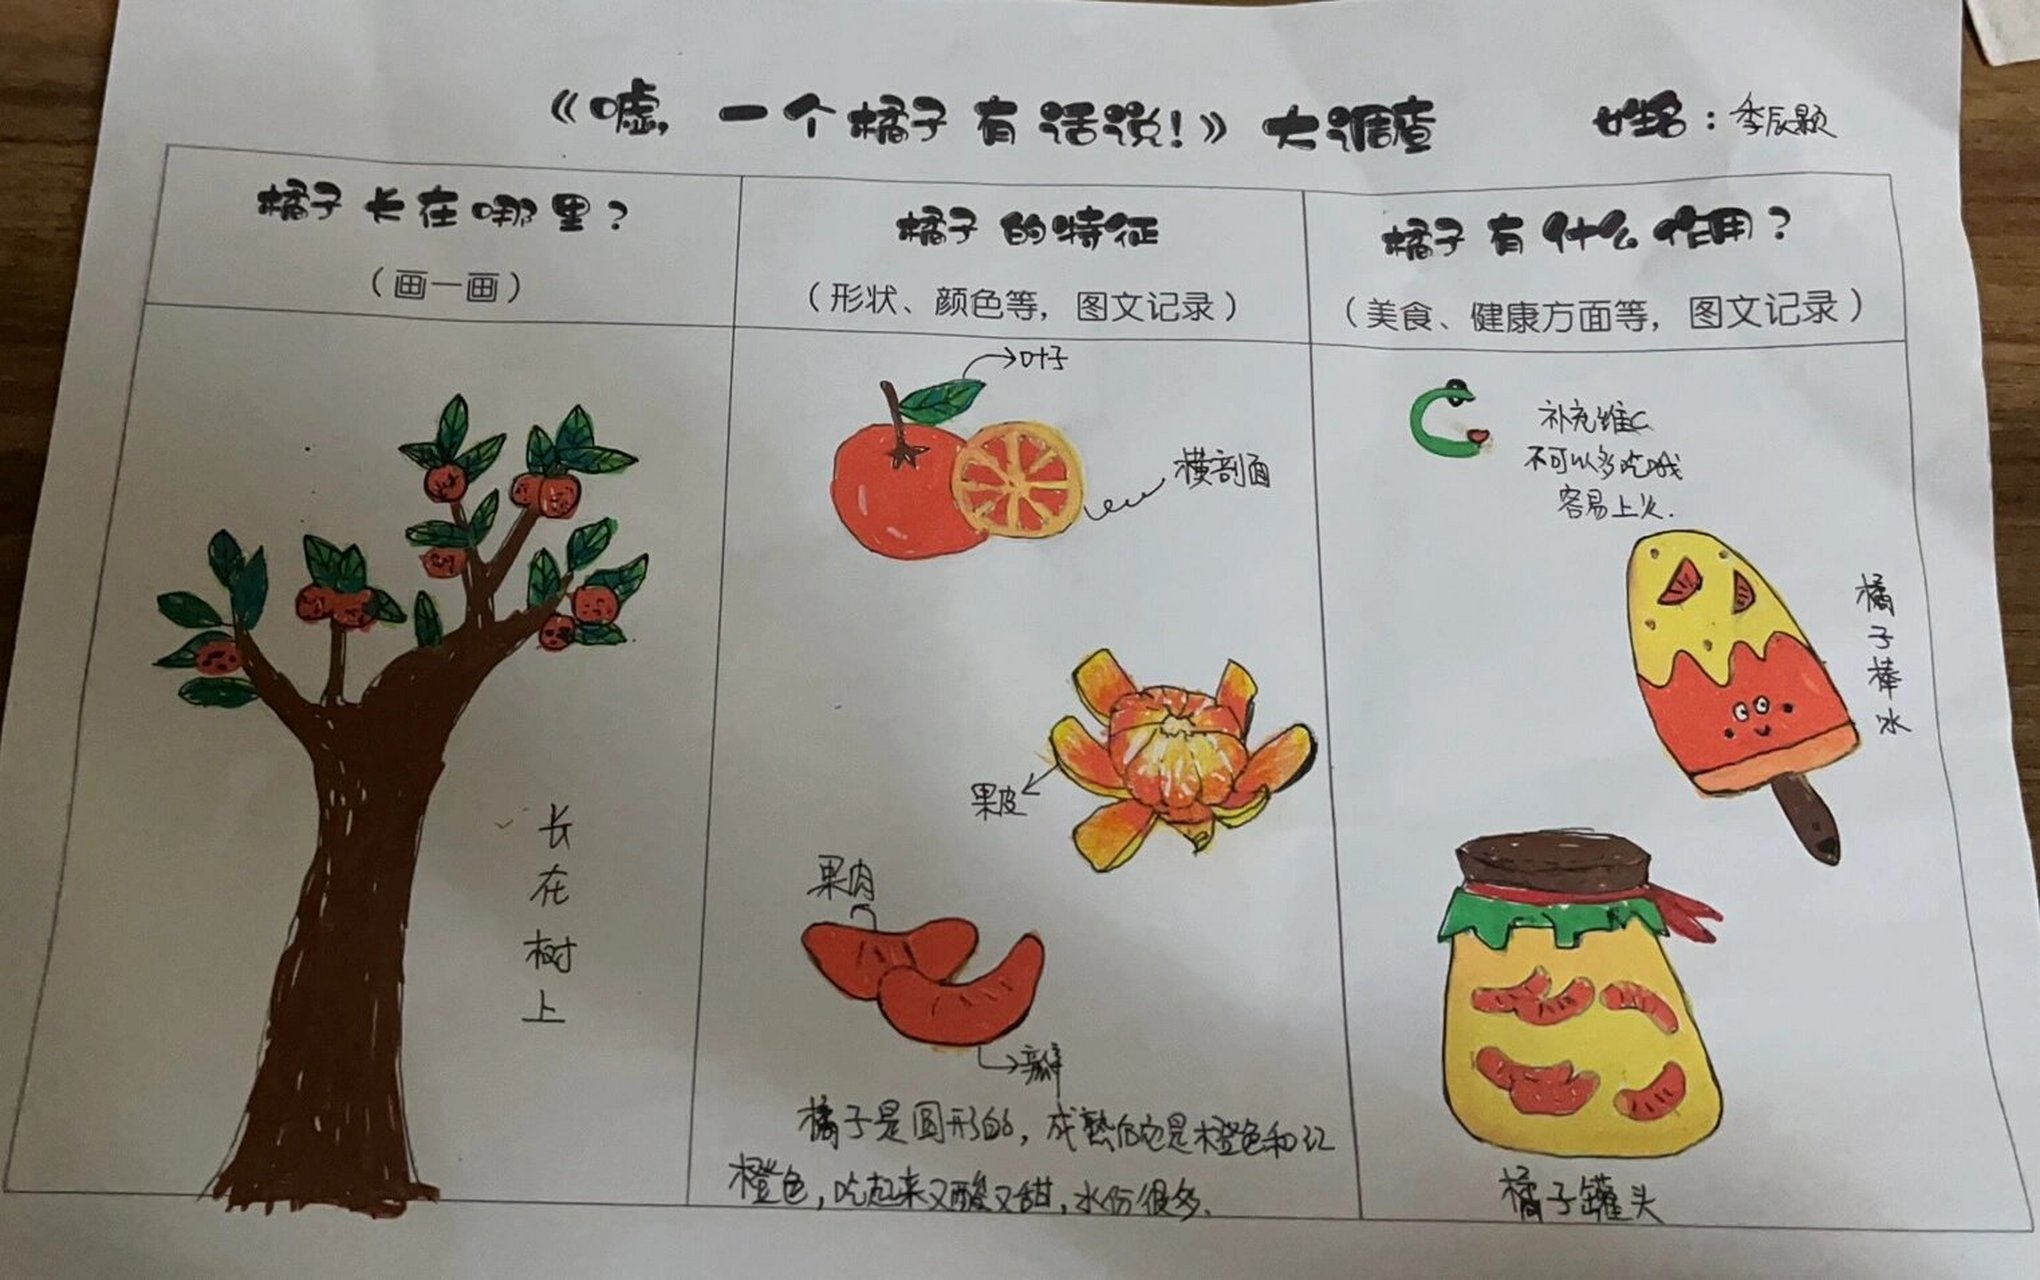 《嘘，一个橘子有话说！》大调查
姓名：季辰颢
橘子长在哪里？
（画一画）
长在树上
橘子的特征
（形状、颜色等，图文记录）
叶子
横剖面
果皮
果肉
瓣
橘子是圆形的，成熟后它是橙色和红
橙色，吃起来又酸又甜，水份很多.
橘子有什么作用？
（美食、健康方面等，图文记录）
补充维C
不可以多吃哦
容易上火.
橘子棒冰
橘子罐头